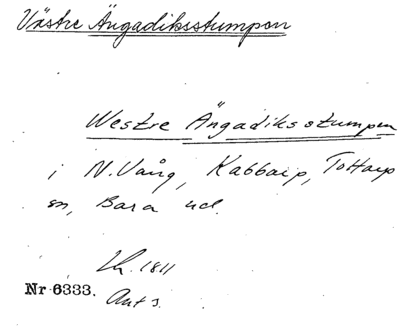 Västre Ängadiksstumpen
Westre Ängadiksstumpen
i N. Vång, Kabbarp, Tottarp
sn, Bara hd.
Lh. 1811
Nr 6333. Akt 3.